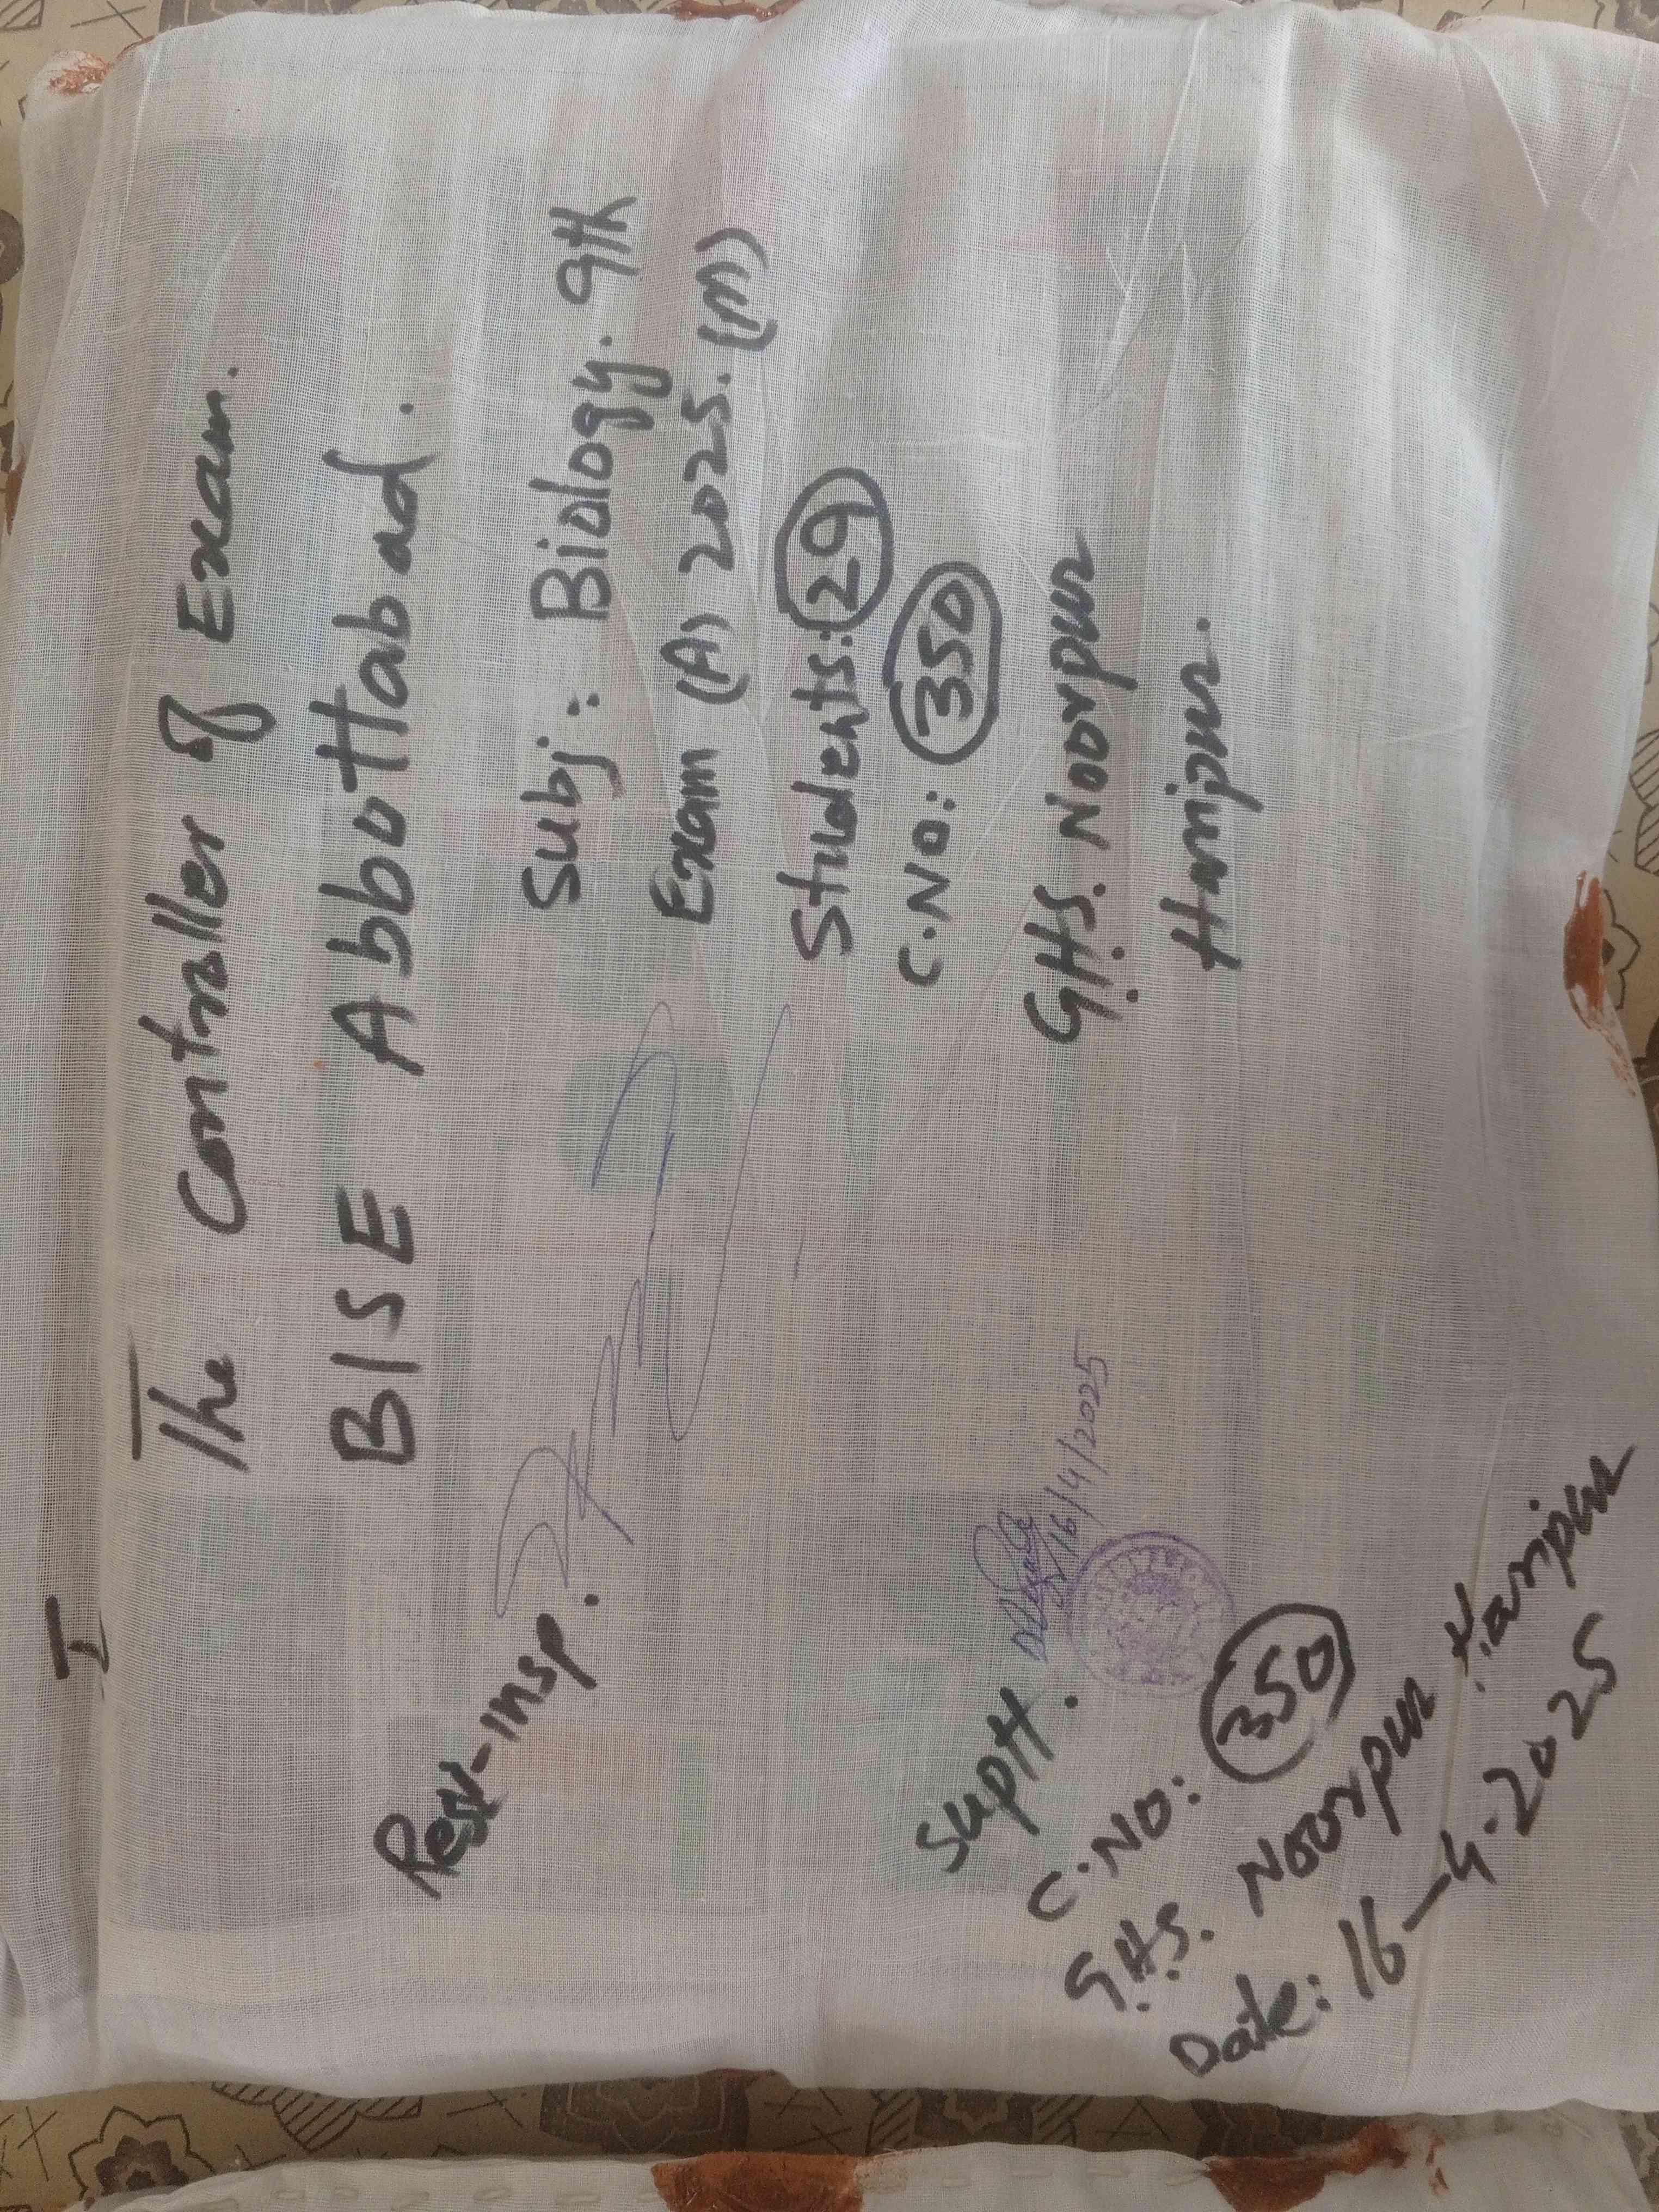 The Controller of Exam.
BISE Abbottabad.
Subj: Biology. 9th
Exam (A) 2025. (M)
Students: 29
C.No: 350
G.H.S. Noorpur
Haripur.
Res-Insp.
Suptt.
16/4/2025
C.No: 350
G.H.S. Noorpur Haripur
Date: 16-4-2025